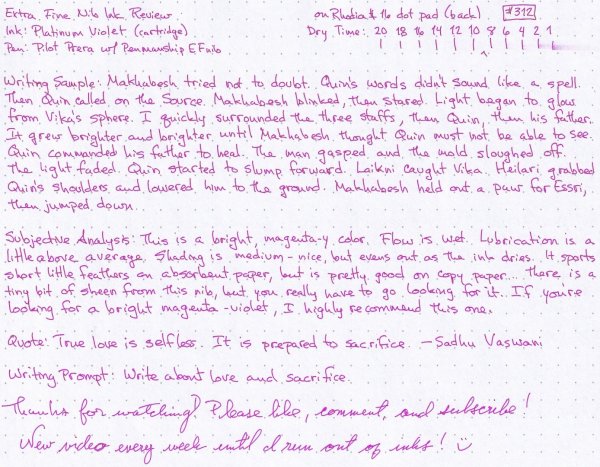 Extra Fine Nib Ink Review
on Rhodia #16 dot pad (back) #312
Ink: Platinum Violet (cartridge)
Dry Time: 20 18 16 14 12 10 8 6 4 2 1
Pen: Pilot Prera w/ Penmanship EF nib
Writing Sample: Makhabesh tried not to doubt. Quin's words didn't sound like a spell.
Then Quin called on the Source. Makhabesh blinked, then stared. Light began to glow
from Vika's sphere. I quickly surrounded the three staffs, then Quin, then his father.
It grew brighter and brighter until Makhabesh thought Quin must not be able to see.
Quin commanded his father to heal. The man gasped and the mold sloughed off.
The light faded. Quin started to slump forward. Laikni caught Vika. Heilari grabbed
Quin's shoulders and lowered him to the ground. Makhabesh held out a paw for Essri,
then jumped down.
Subjective Analysis: This is a bright, magenta-y color. Flow is wet. Lubrication is a
little above average. Shading is medium - nice, but evens out as the ink dries. It sports
short little feathers on absorbent paper, but is pretty good on copy paper... There is a
tiny bit of sheen from this nib, but you really have to go looking for it. If you're
looking for a bright magenta-violet, I highly recommend this one.
Quote: True love is selfless. It is prepared to sacrifice. - Sadhu Vaswani
Writing Prompt: Write about love and sacrifice.
Thanks for watching! Please like, comment, and subscribe!
New video every week until I run out of inks!